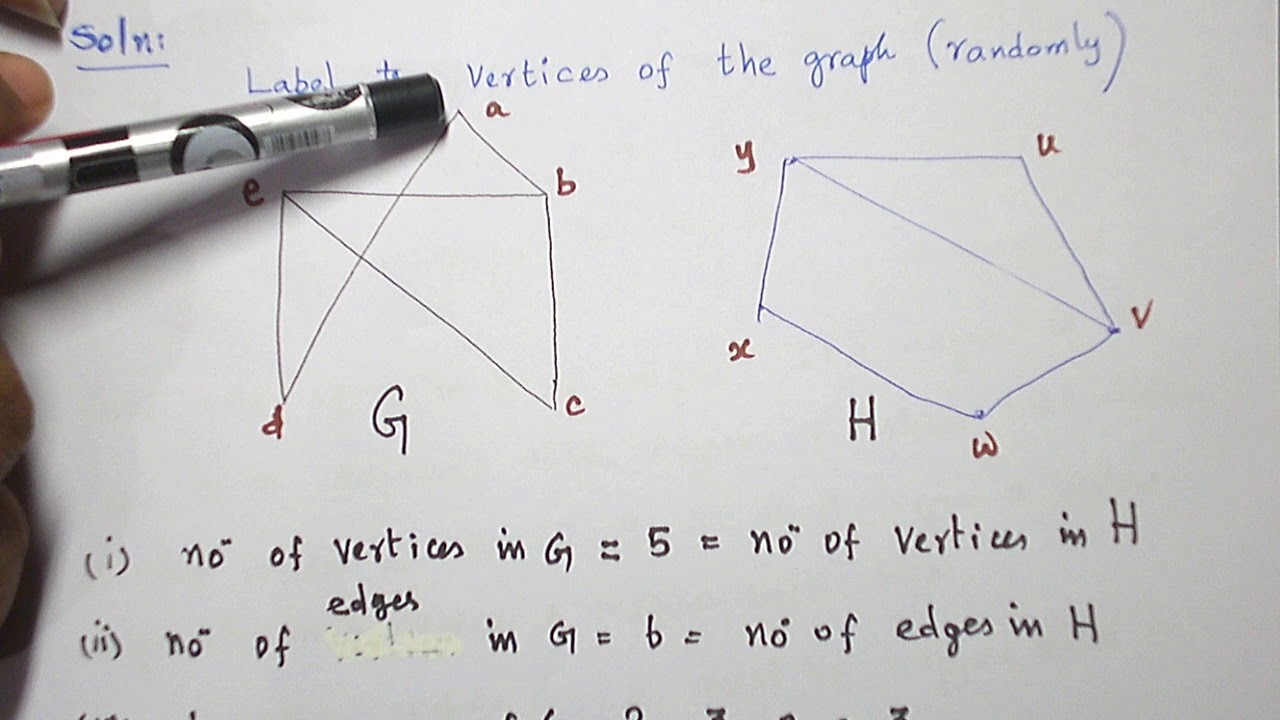 Soln:
Label vertices of the graph (randomly)
a
e b
d c
G
y u
x v
w
H
(i) no of vertices in G = 5 = no of vertices in H
edges
(ii) no of in G = 6 = no of edges in H